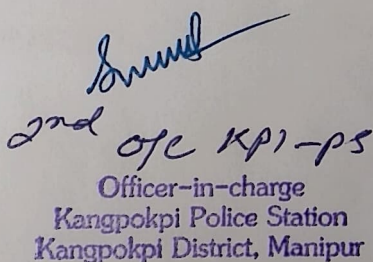 2nd O/C KPI-PS
Officer-in-charge
Kangpokpi Police Station
Kangpokpi District, Manipur